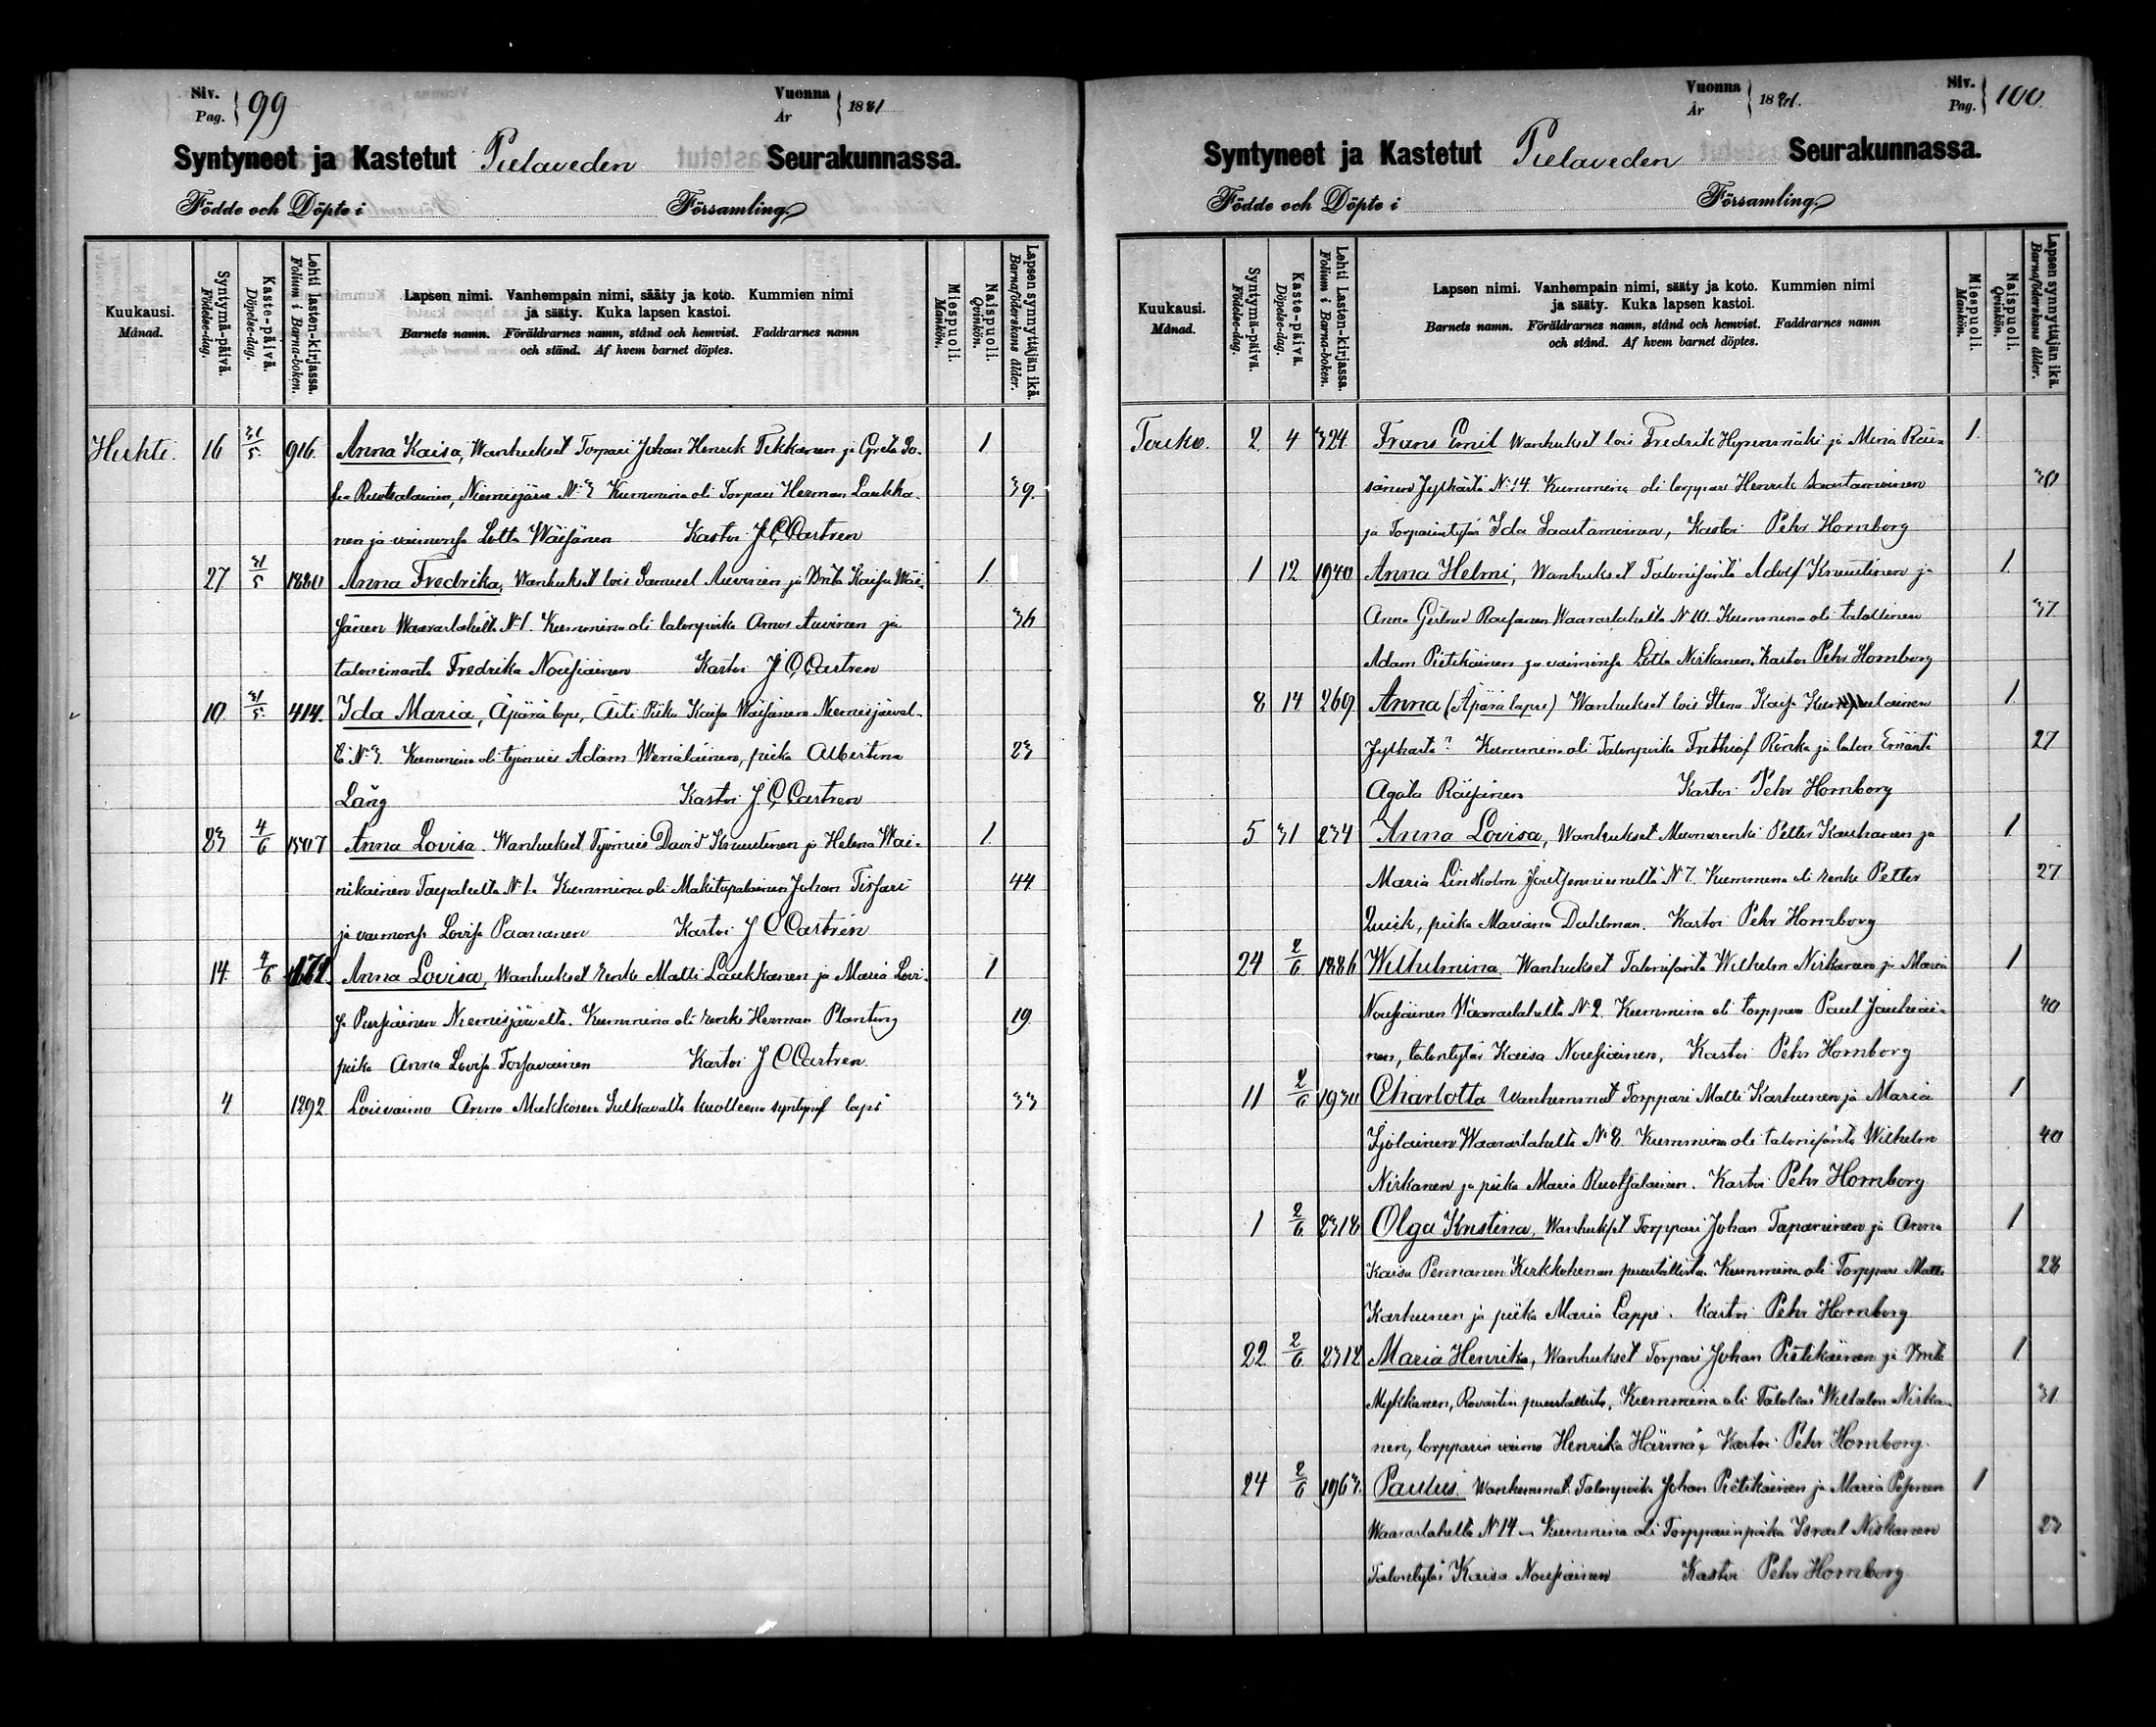 Siv.
Pag. 99
Vuonna
År 1881
Syntyneet ja Kastetut Pielaveden Seurakunnassa.
Födde och Döpte i Församling
Kuukausi.
Månad.
Syntymä-päivä.
Födelse-dag.
Kaste-päivä.
Döpelse-dag.
Lehti lasten-kirjassa.
Folium i Barna-boken.
Lapsen nimi. Vanhempain nimi, sääty ja koto. Kummien nimi
ja sääty. Kuka lapsen kastoi.
Barnets namn. Föräldrarnes namn, stånd och hemvist. Faddrarnes namn
och stånd. Af hvem barnet döptes.
Miespuoli.
Mankön.
Naispuoli.
Qvinkön.
Lapsen synnyttäjän ikä.
Barnaföderskans ålder.
Huhti. 16 31/5 916. Anna Kaisa, Wanhukset Torpari Johan Henrik Tikkanen ja Greta So- 1
fia Ruotsalainen, Niemisjärvi N:3 Kummina oli Torpari Herman Laukka- 39.
nen ja vaimonsa Lotta Wäisänen Kastoi J. C. Castren
27 31/5 1880 Anna Fredrika, Wanhukset lois Samuel Auvinen ja Brita Kaisa Wäi- 1.
sänen Waaraslahelta N:1. Kummina oli talonpoika Amos Auvinen ja 36
talon emäntä Fredrika Nousiainen Kastoi J. C. Castren
10. 31/5 414. Ida Maria, Äpärä laps, Äiti Piika Kaisa Wäisänen Niemisjärvel- 1.
tä N:3 Kummina oli työmies Adam Wenäläinen, piika Albertina 23
Lång Kastoi J. C. Castren
23 4/6 1507 Anna Lovisa. Wanhukset Työmies David Knuutinen ja Helena Wäi- 1.
nikainen Taipaleelta N:1. Kummina oli Mäkitupalainen Johan Tissari 44
ja vaimonsa Lovisa Paananen Kastoi J C Castrén
14. 4/6 Anna Lovisa, Wanhukset renki Matti Laukkanen ja Maria Lovi- 1
sa Pursiainen Niemisjärveltä. Kummina oli renki Herman Planting 19.
piika Anna Lovisa Korsavainen Kastoi J C Castren.
4 1292 Loisvaimo Anna Mukkosen Sulkavalta kuolleena syntynyt lapsi 33
Vuonna
År 1881.
Siv.
Pag. 100
Syntyneet ja Kastetut Pielaveden Seurakunnassa.
Födde och Döpte i Församling
Kuukausi.
Månad.
Syntymä-päivä.
Födelse-dag.
Kaste-päivä.
Döpelse-dag.
Lehti Lasten-kirjassa.
Folium i Barna-boken.
Lapsen nimi. Vanhempain nimi, sääty ja koto. Kummien nimi
ja sääty. Kuka lapsen kastoi.
Barnets namn. Föräldrarnes namn, stånd och hemvist. Faddrarnes namn
och stånd. Af hvem barnet döptes.
Miespuoli.
Mankön.
Naispuoli.
Qvinkön.
Lapsen synnyttäjän ikä.
Barnaföderskans ålder.
Touko. 2. 4 324. Frans Emil Wanhukset lois Fredrik Hyvönmäki ja Miina Räi- 1.
sänen Jylhästä N:14. Kummina oli torppari Henrik Saastamoinen 30
ja Torparintytär Ida Saastamoinen, Kastoi Pehr Hornborg
1 12 1940 Anna Helmi, Wanhukset Talonisäntä Adolf Knuutinen ja 1.
Anna Gertrud Rausanen Waaraslahelta N:10. Kummina oli talollinen 37
Adam Pietikäinen ja vaimonsa Lotta Niskanen, Kastoi Pehr Hornborg
8 14 269 Anna (Äpärä lapsi) Wanhukset lois Stena Kaisa 1.
Jylhästä? Kummina oli Talonpoika Frithiof Rönkä ja talon Emäntä 27
Agata Räisänen Kastoi Pehr Hornborg
5 31 234 Anna Lovisa, Wanhukset Muonarenki Petter Kauhanen ja 1
Maria Lindholm Joutsenniemeltä N:7. Kummina oli renki Petter 27
Quick, piika Mariana Dahlman. Kastoi Pehr Hornborg
24 2/6 1886 Wilhelmina Wanhukset Talonisäntä Wilhelm Niskanen ja Maria 1
Nousiainen Waaraslahelta N:2. Kummina oli torppari Paul Jauhiai- 40
nen, talontytär Kaisa Nousiainen, Kastoi Pehr Hornborg
11 2/6 1930 Charlotta Wanhemmat Torppari Matti Karhunen ja Maria 1
Lyötäinen Waaraslahelta N:8. Kummina oli talonisäntä Wilhelm 40
Niskanen ja piika Maria Ruotsalainen. Kastoi Pehr Hornborg
1 2/6 2318 Olga Kristina, Wanhukset Torppari Johan Tapaninen ja Anna 1
Kaisa Pennanen Kirkkoherran puustallista. Kummina oli Torppari Matti 28
Karhunen ja piika Maria Lappi. Kastoi Pehr Hornborg
22 2/6 2312 Maria Henrika, Wanhukset Torpari Johan Pietikäinen ja Brita 1
Mykkänen, Rovastin puustallista, Kummina oli Talokas Wilhelm Niska- 31
nen, torpparin vaimo Henrika Härmä, Kastoi Pehr Hornborg.
24 2/6 1963. Paulus. Wanhemmat Talonpoika Johan Pietikäinen ja Maria Pöjänen 1
Waaraslahelta N:14 Kummina oli Torpparinpoika Israel Niskanen 23
Talontytär Kaisa Nousiainen Kastoi Pehr Hornborg